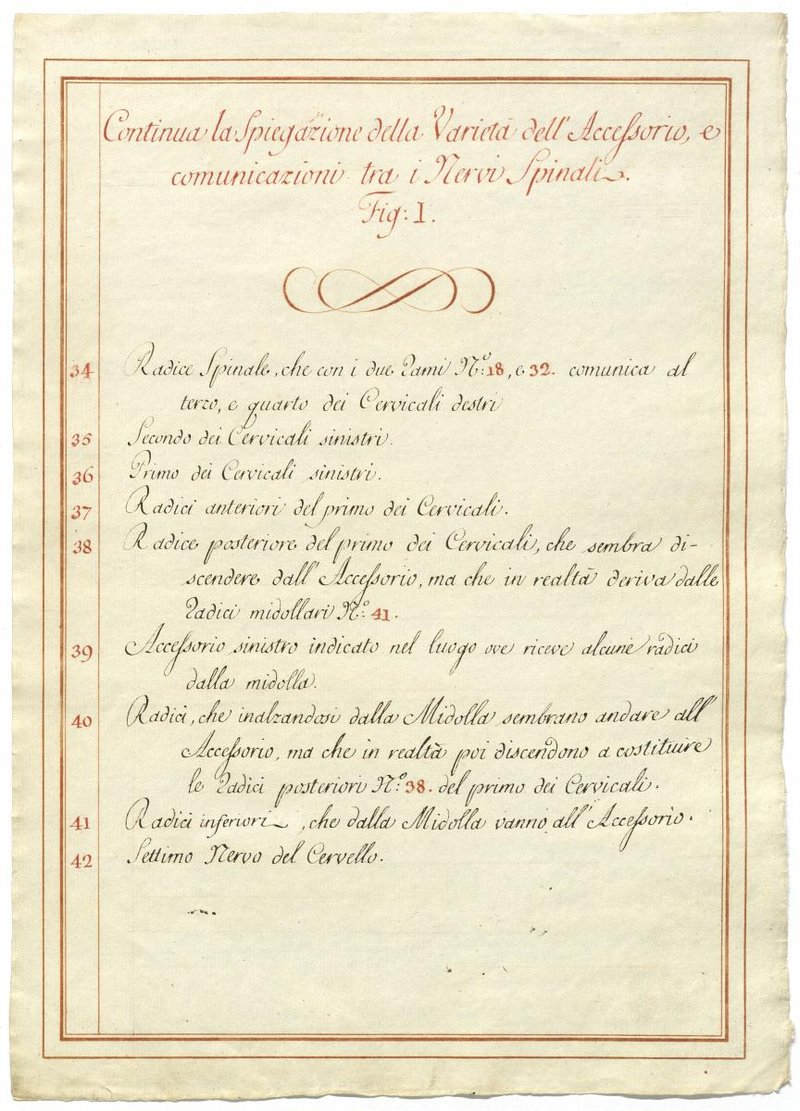 Continua la Spiegazione della Varietà dell'Accessorio, e
comunicazioni tra i Nervi Spinali.
Fig: I.
34 Radice Spinale, che con i due Rami N.º 18, e 32. comunica al
terzo, e quarto dei Cervicali destri
35 Secondo dei Cervicali sinistri.
36 Primo dei Cervicali sinistri.
37 Radici anteriori del primo dei Cervicali.
38 Radice posteriore del primo dei Cervicali, che sembra di-
scendere dall'Accessorio, ma che in realtà deriva dalle
Radici midollari N.º 41.
39 Accessorio sinistro indicato nel luogo ove riceve alcune radici
dalla midolla.
40 Radici, che inalzandosi dalla Midolla sembrano andare all'
Accessorio, ma che in realtà poi discendono a costituire
le Radici posteriori N.º 38. del primo dei Cervicali.
41 Radici inferiori, che dalla Midolla vanno all'Accessorio.
42 Settimo Nervo del Cervello.